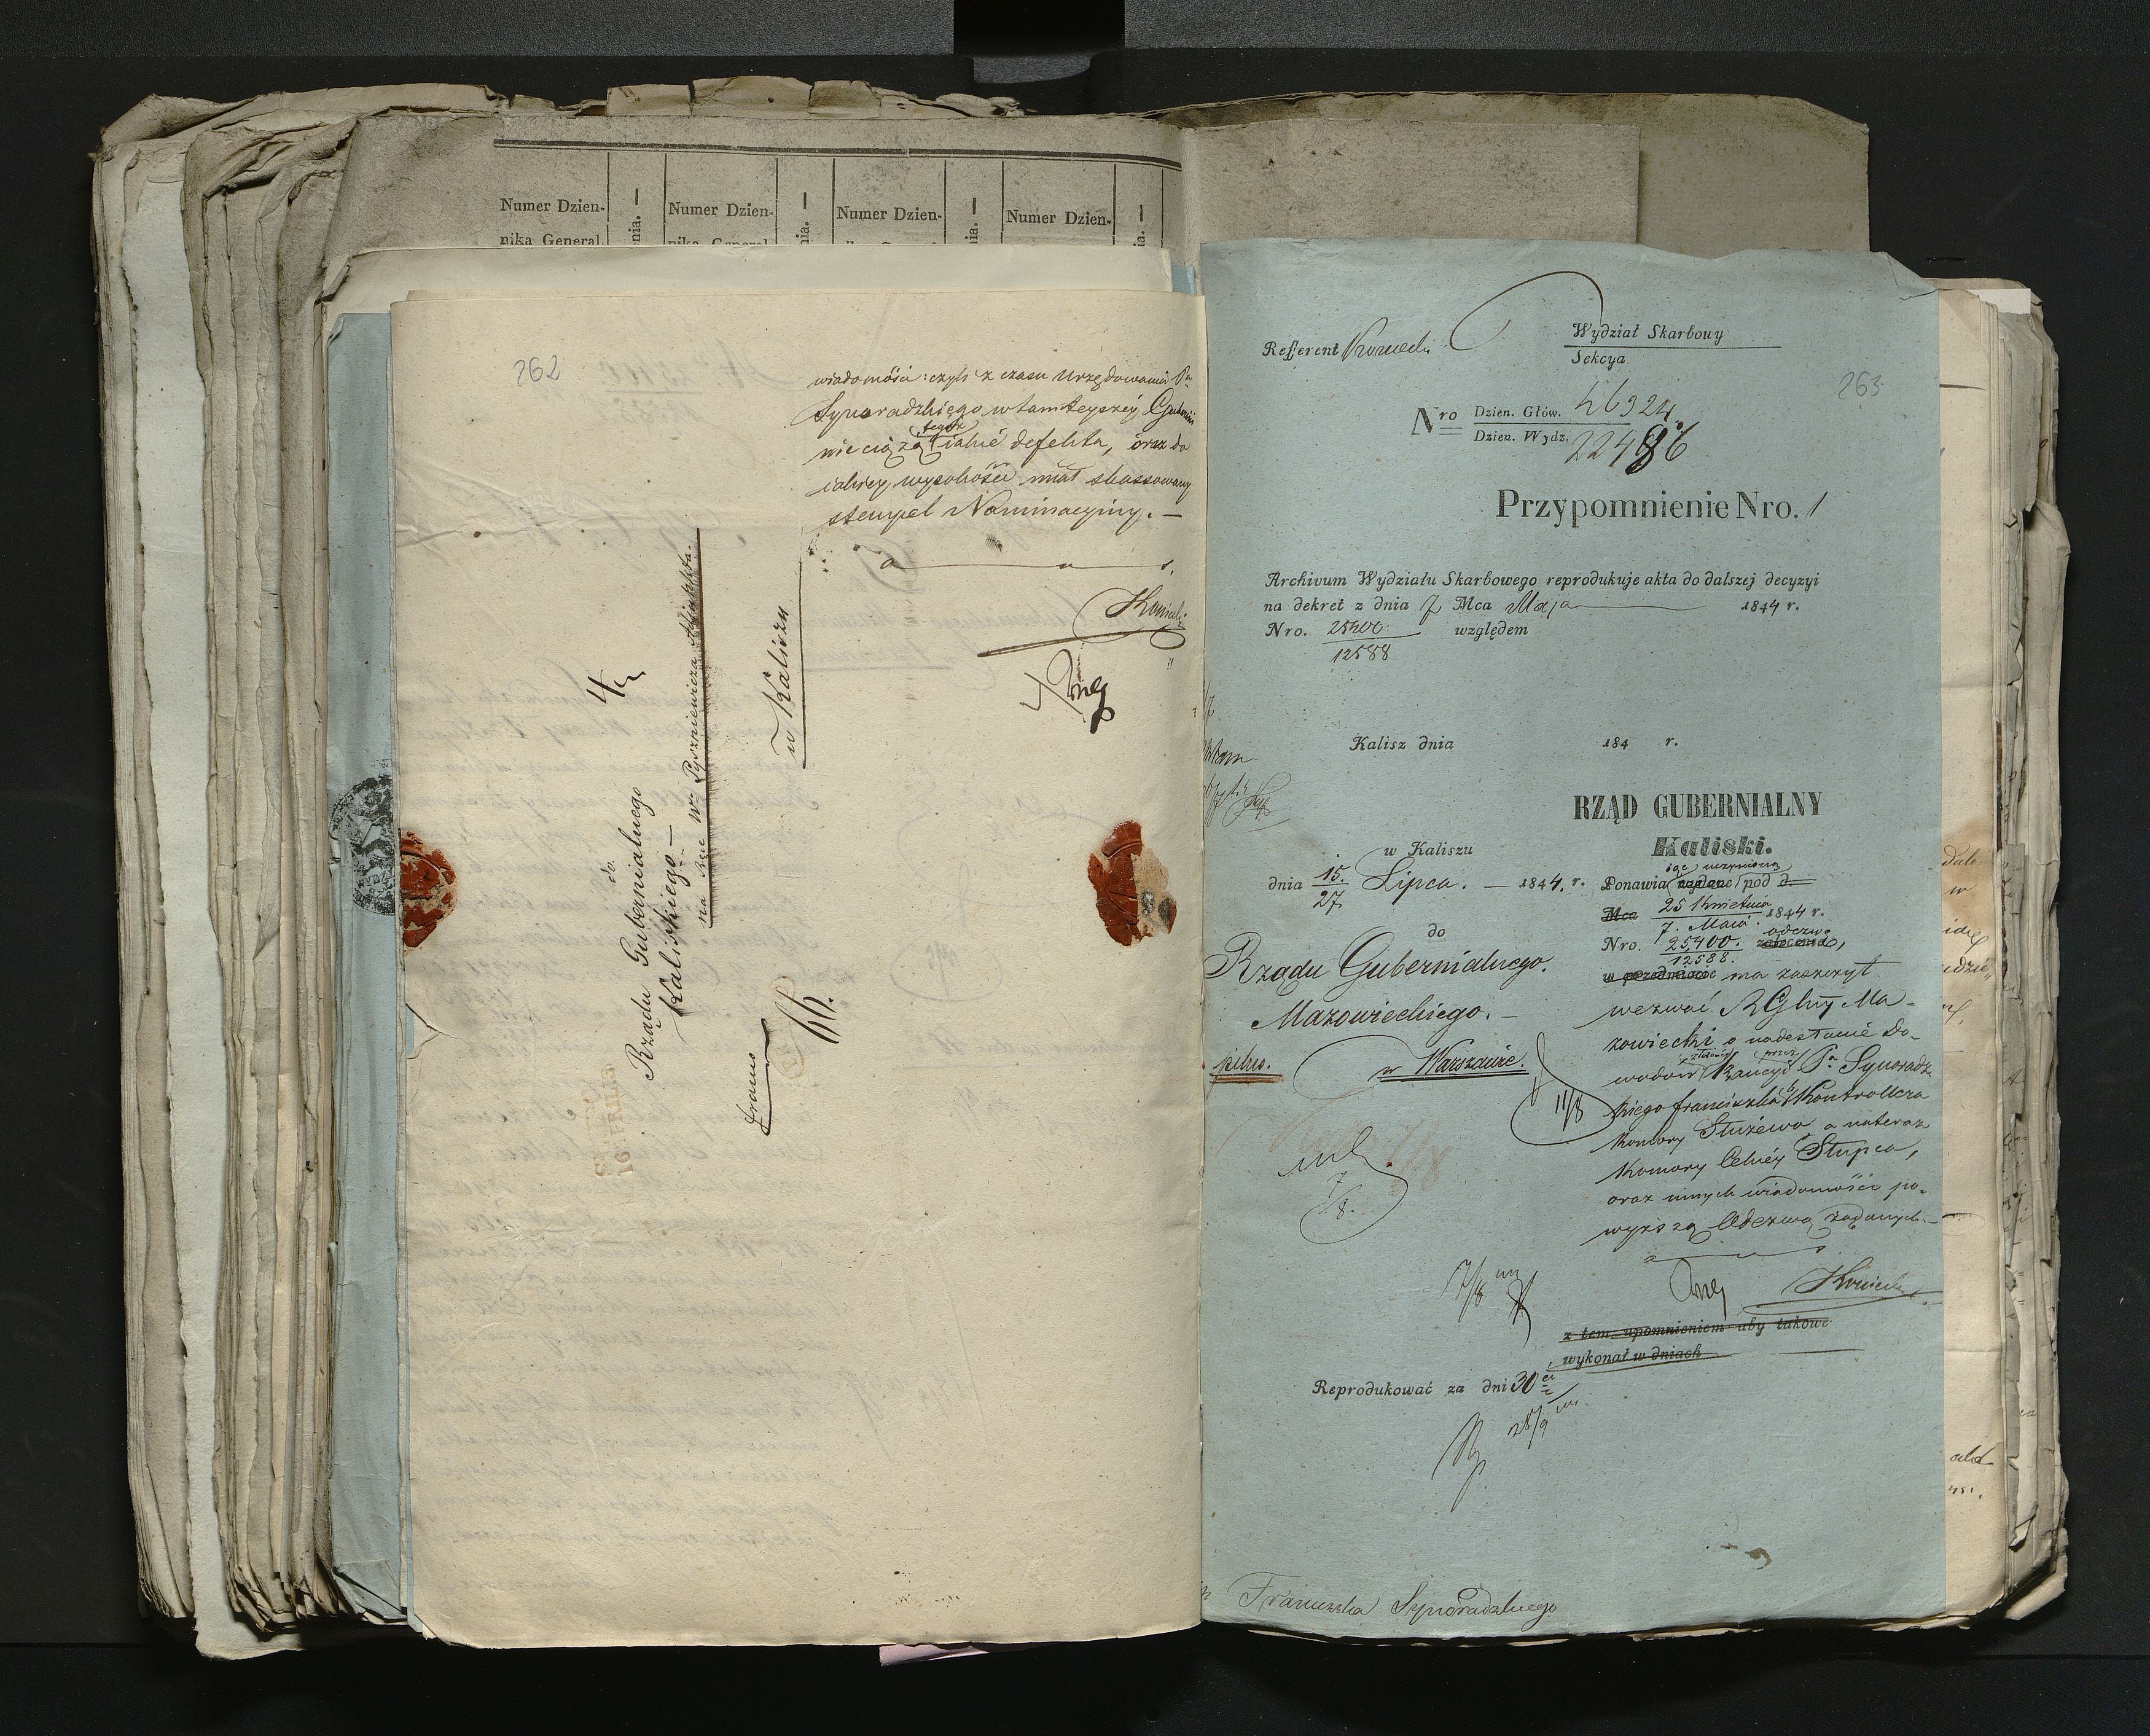 Numer Dzien-
nika General.
Numer Dzien-
Numer Dzien-
Numer Dzien-
262
wiadomości: czyli z czasu Urzędowania Pa
Synoradzkiego w tamtejszej Gubernii
nie ciążą jakie defekta, oraz do
jakiej wysokości miał skassowany
stempel Nominacyjny. —
do
Rządu Gubernialnego
Kaliskiego —
na Ręce W° Pyszniewicza
w Kaliszu
franco
263
Referent
Wydział Skarbowy
Sekcya
Nro Dzien. Głów. 46924
Dzien. Wydz. 22486
Przypomnienie Nro. 1
Archivum Wydziału Skarbowego reprodukuje akta do dalszej decyzyi
na dekret z dnia 7 Mca Maja 1844 r.
Nro. 25400 względem
12588
Kalisz dnia 184 r.
RZĄD GUBERNIALNY
Kaliski.
w Kaliszu
dnia 15/27 Lipca. — 1844. r.
do
Rządu Gubernialnego.
Mazowieckiego. —
w Warszawie.
pilno.
Ponawia wydane pod d
Mca 25 Kwietnia 1844 r.
7. Maia
Nro. 25,400. odezwę
12588.
w przedmiocie ma zaszczyt
wezwać RGlny Ma-
zowiecki o nadesłanie do-
wodów złożonéy przez Kaucyi Pa Synoradz
kiego franciszka Kontrollera
Komory Służewo a nateraz
Komory Celnéy Słupca,
oraz innych wiadomości po-
wyższą Odezwą żądanych. —
11/8
7
8.
7/8
z tem upomnieniem aby takowe
wykonał w dniach
Reprodukować za dni 30
28/9
Franciszka Synoradzkiego